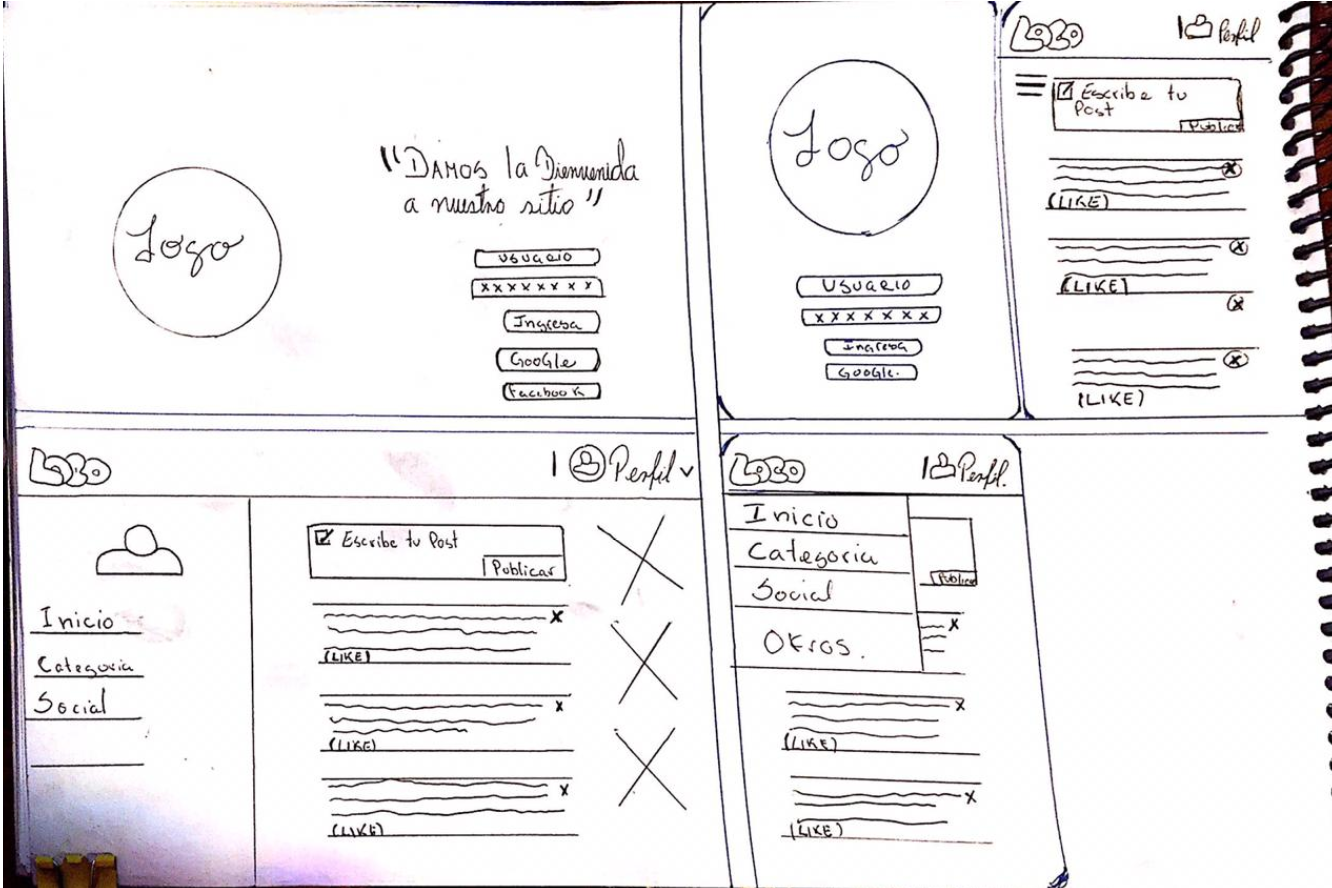 Logo
"DAMOS la Bienvenida
a nuestro sitio"
USUARIO
xxxxxxxx
Ingresa
GooGle
Facebook
Logo
USUARIO
xxxxxxx
Ingresa
GooGle.
LOGO
Perfil
Escribe tu
Post
Publicar
x
(LIKE)
x
(LIKE)
x
x
(LIKE)
LOGO
Perfil
Inicio
Categoria
Social
Escribe tu Post
Publicar
x
(LIKE)
x
(LIKE)
x
(LIKE)
LOGO
Perfil.
Inicio
Categoria
Social
Otros.
Publicar
x
x
(LIKE)
x
(LIKE)